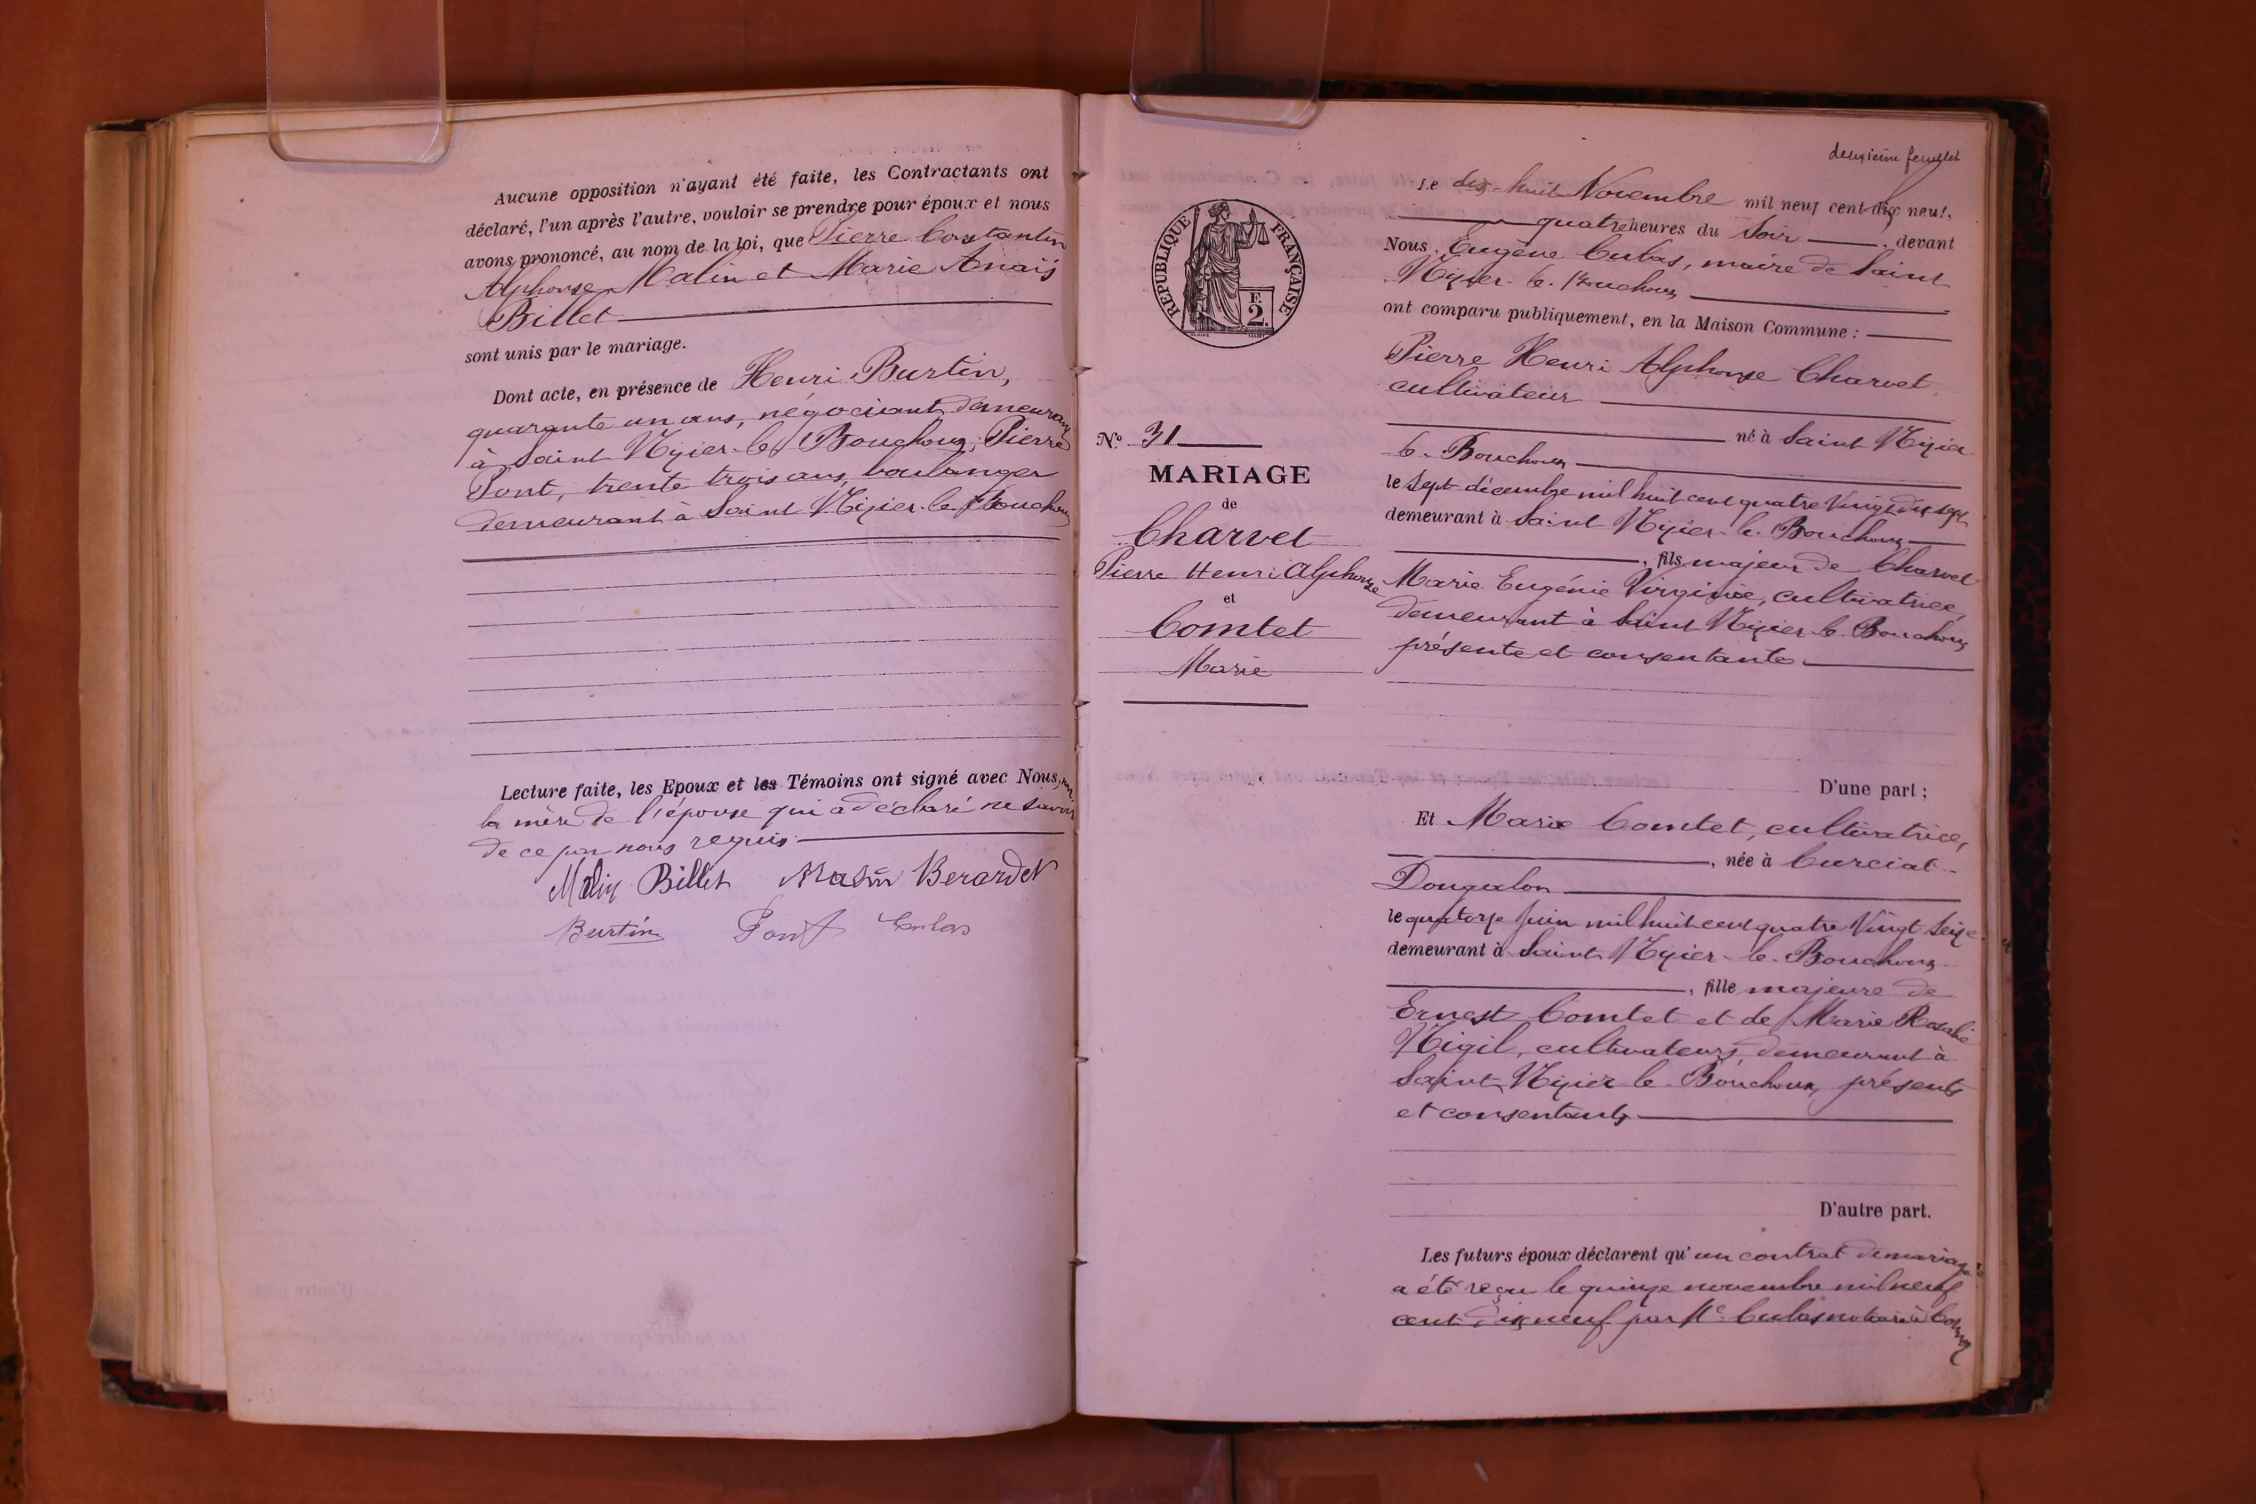 Aucune opposition n'ayant été faite, les Contractants ont
déclaré, l'un après l'autre, vouloir se prendre pour époux et nous
avons prononcé, au nom de la loi, que Pierre Constantin
Alphonse Malin et Marie Anaïs
Billet
sont unis par le mariage.
Dont acte, en présence de Henri Burtin,
quarante un ans, négociant demeurant
à Saint Nizier-le-Bouchoux, Pierre
Pont, trente trois ans, boulanger
demeurant à Saint Nizier-le-Bouchoux
Lecture faite, les Epoux et les Témoins ont signé avec Nous, non
la mère de l'épouse qui a déclaré ne savoir
de ce par nous requis
Malin Billet Berardet
Burtin Pont Cubas
deuxième feuillet
Le dix-huit Novembre mil neuf cent dix neuf,
quatre heures du Soir, devant
Nous, Eugène Cubas, maire de Saint
Nizier-le-Bouchoux
ont comparu publiquement, en la Maison Commune :
Pierre Henri Alphonse Charvet
cultivateur
né à Saint Nizier
le-Bouchoux
le sept décembre mil huit cent quatre vingt dix sept
demeurant à Saint Nizier-le-Bouchoux
, fils majeur de Charvet
Marie Eugénie Virginie, cultivatrice,
demeurant à Saint Nizier-le-Bouchoux
présente et consentante
REPUBLIQUE FRANÇAISE
F.
2.
N° 31
MARIAGE
de
Charvet
Pierre Henri Alphonse
et
Comtet
Marie
D'une part ;
Et Marie Comtet, cultivatrice,
, née à Curciat-
Dongalon
le quatorze Juin mil huit cent quatre Vingt Seize
demeurant à Saint Nizier-le-Bouchoux
, fille majeure de
Ernest Comtet et de Marie Rosalie
cultivateurs, demeurant à
Saint Nizier-le-Bouchoux, présents
et consentants
D'autre part.
Les futurs époux déclarent qu'un contrat de mariage
a été reçu le quinze novembre mil neuf
cent dix neuf par Me Cubas notaire à